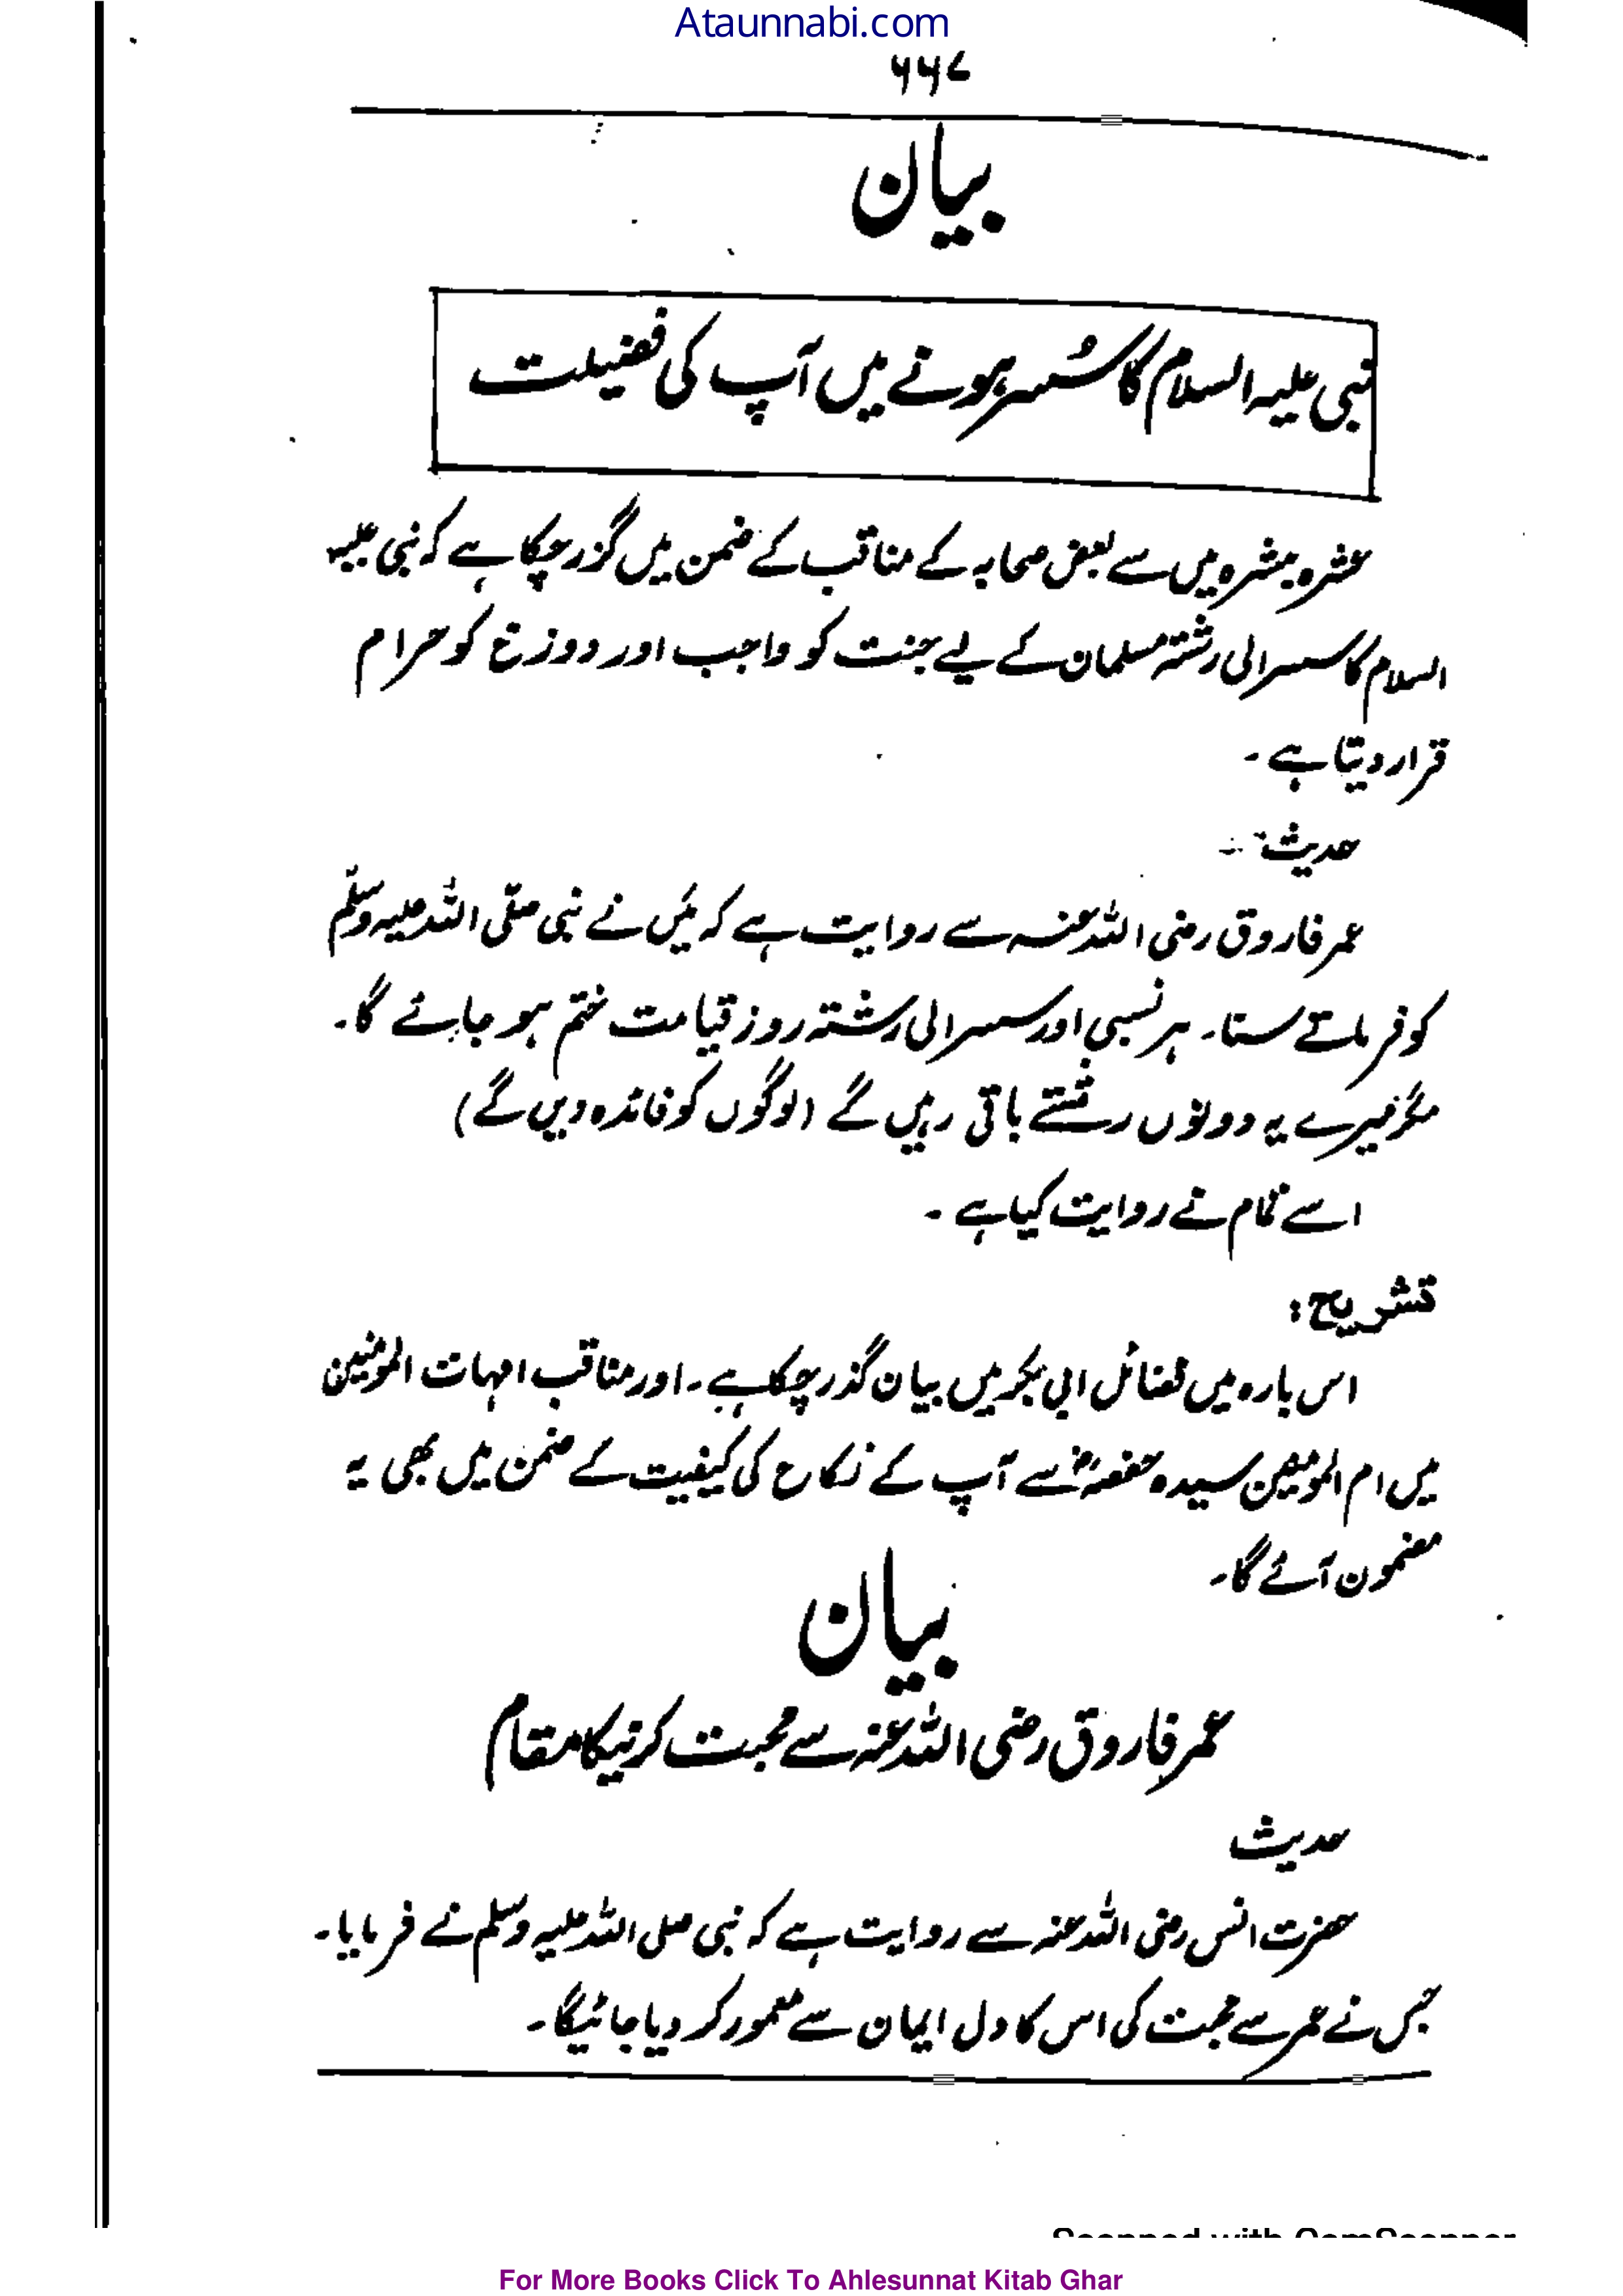 Ataunnabi.com
۶۶۷
بیان
نبی علیہ السلام کا سُسر ہونے میں آپ کی فضیلت
عشرہ مبشرہ میں سے بعض صحابہ کے مناقب کے ضمن میں گزر چکا ہے کہ نبی علیہ
السلام کا سسرالی رشتہ مسلمان کے لیے جنت کو واجب اور دوزخ کو حرام
قرار دیتا ہے۔
حدیث :-
عمر فاروق رضی اللہ عنہ سے روایت ہے کہ میں نے نبی صلّی اللہ علیہ وسلّم
کو فرماتے سنا۔ ہر نسبی اور سسرالی رشتہ روز قیامت ختم ہو جائے گا۔
مگر میرے یہ دونوں رشتے باقی رہیں گے (لوگوں کو فائدہ دیں گے)
اسے تمام نے روایت کیا ہے ۔
تشریح :
اس بارہ میں فضائل ابی بکر میں بیان گذر چکا ہے۔ اور مناقب امہات المومنین
میں ام المومنین سیدہ حفصہؓ سے آپ کے نکاح کی کیفیت کے ضمن میں بھی یہ
مضمون آئے گا۔
بیان
عمر فاروق رضی اللہ عنہ سے محبت کرنیکا مقام
حدیث
حضرت انس رضی اللہ عنہ سے روایت ہے کہ نبی صلی اللہ علیہ وسلم نے فرمایا۔
جس نے عمر سے محبت کی اس کا دل ایمان سے معمور کر دیا جائیگا۔
Scanned with CamScanner
For More Books Click To Ahlesunnat Kitab Ghar